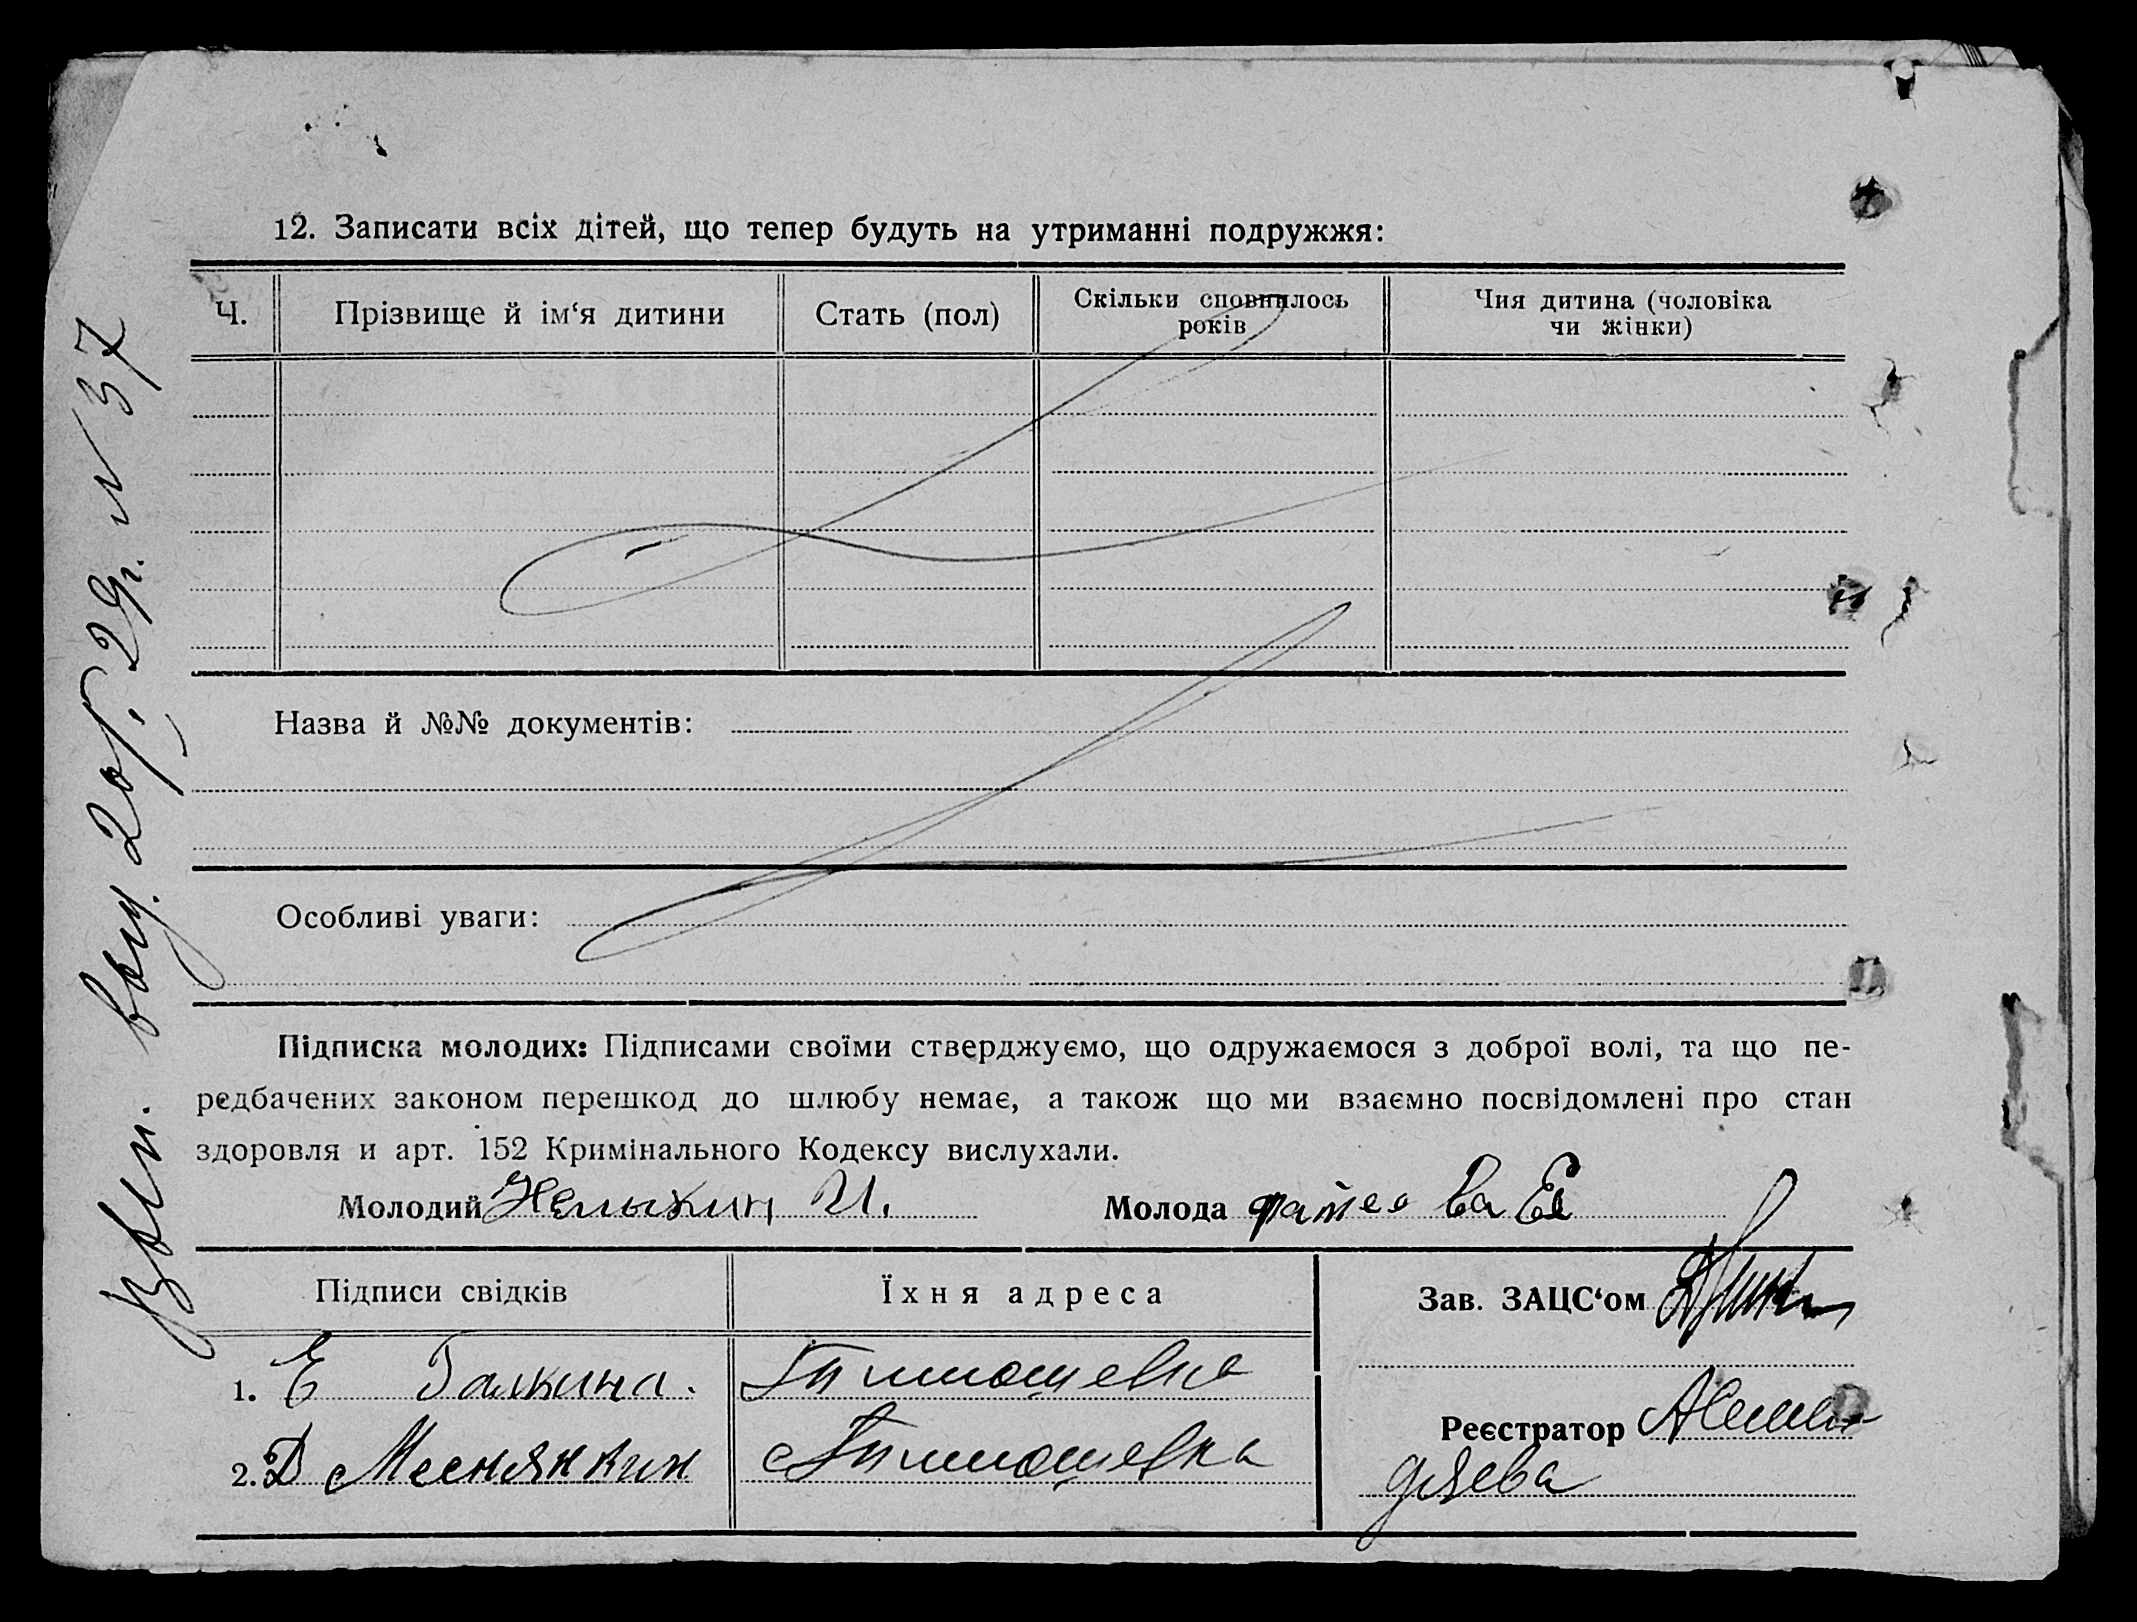 12. Записати всіх дітей, що тепер будуть на утриманні подружжя:
Ч.
Прізвище й ім‘я дитини
Стать (пол)
Скільки сповнилось
років
Чия дитина (чоловіка
чи жінки)
Назва й №№ документів:
Особливі уваги:
Підписка молодих: Підписами своїми стверджуємо, що одружаємося з доброї волі, та що пе-
редбачених законом перешкод до шлюбу немає, а також що ми взаємно посвідомлені про стан
здоровля и арт. 152 Кримінального Кодексу вислухали.
Молодий Нелыхин И.
Молода Фатеева Е
Підписи свідків
Їхня адреса
1. Е Галкина. Тимошевка
2. Д Меснянкин Тимошевка
Зав. ЗАЦС‘ом
Реєстратор
29г. N 37